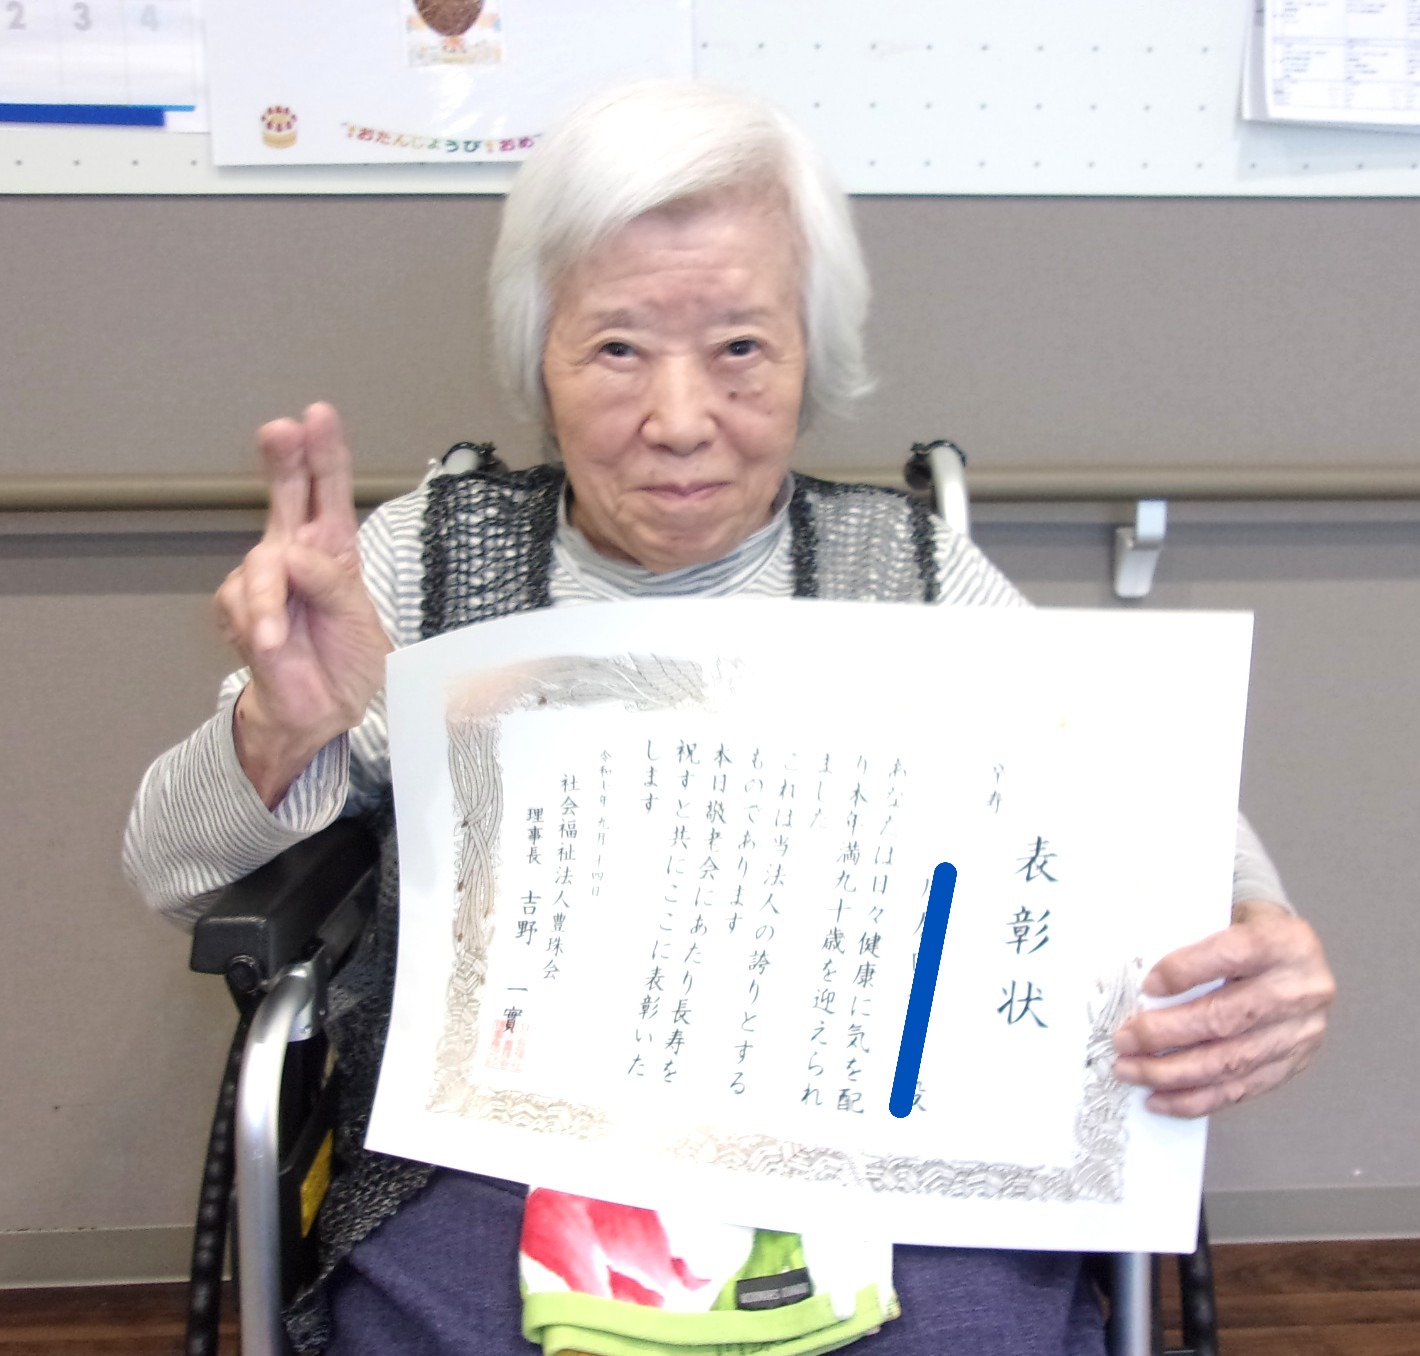 2 3 4
おたんじょうび おめ
卒寿
表彰状
殿
あなたは日々健康に気を配
り本年満九十歳を迎えられ
ました
これは当法人の誇りとする
ものであります
本日敬老会にあたり長寿を
祝すと共にここに表彰いた
します
九月十四日
社会福祉法人豊珠会
理事長 吉野 一實